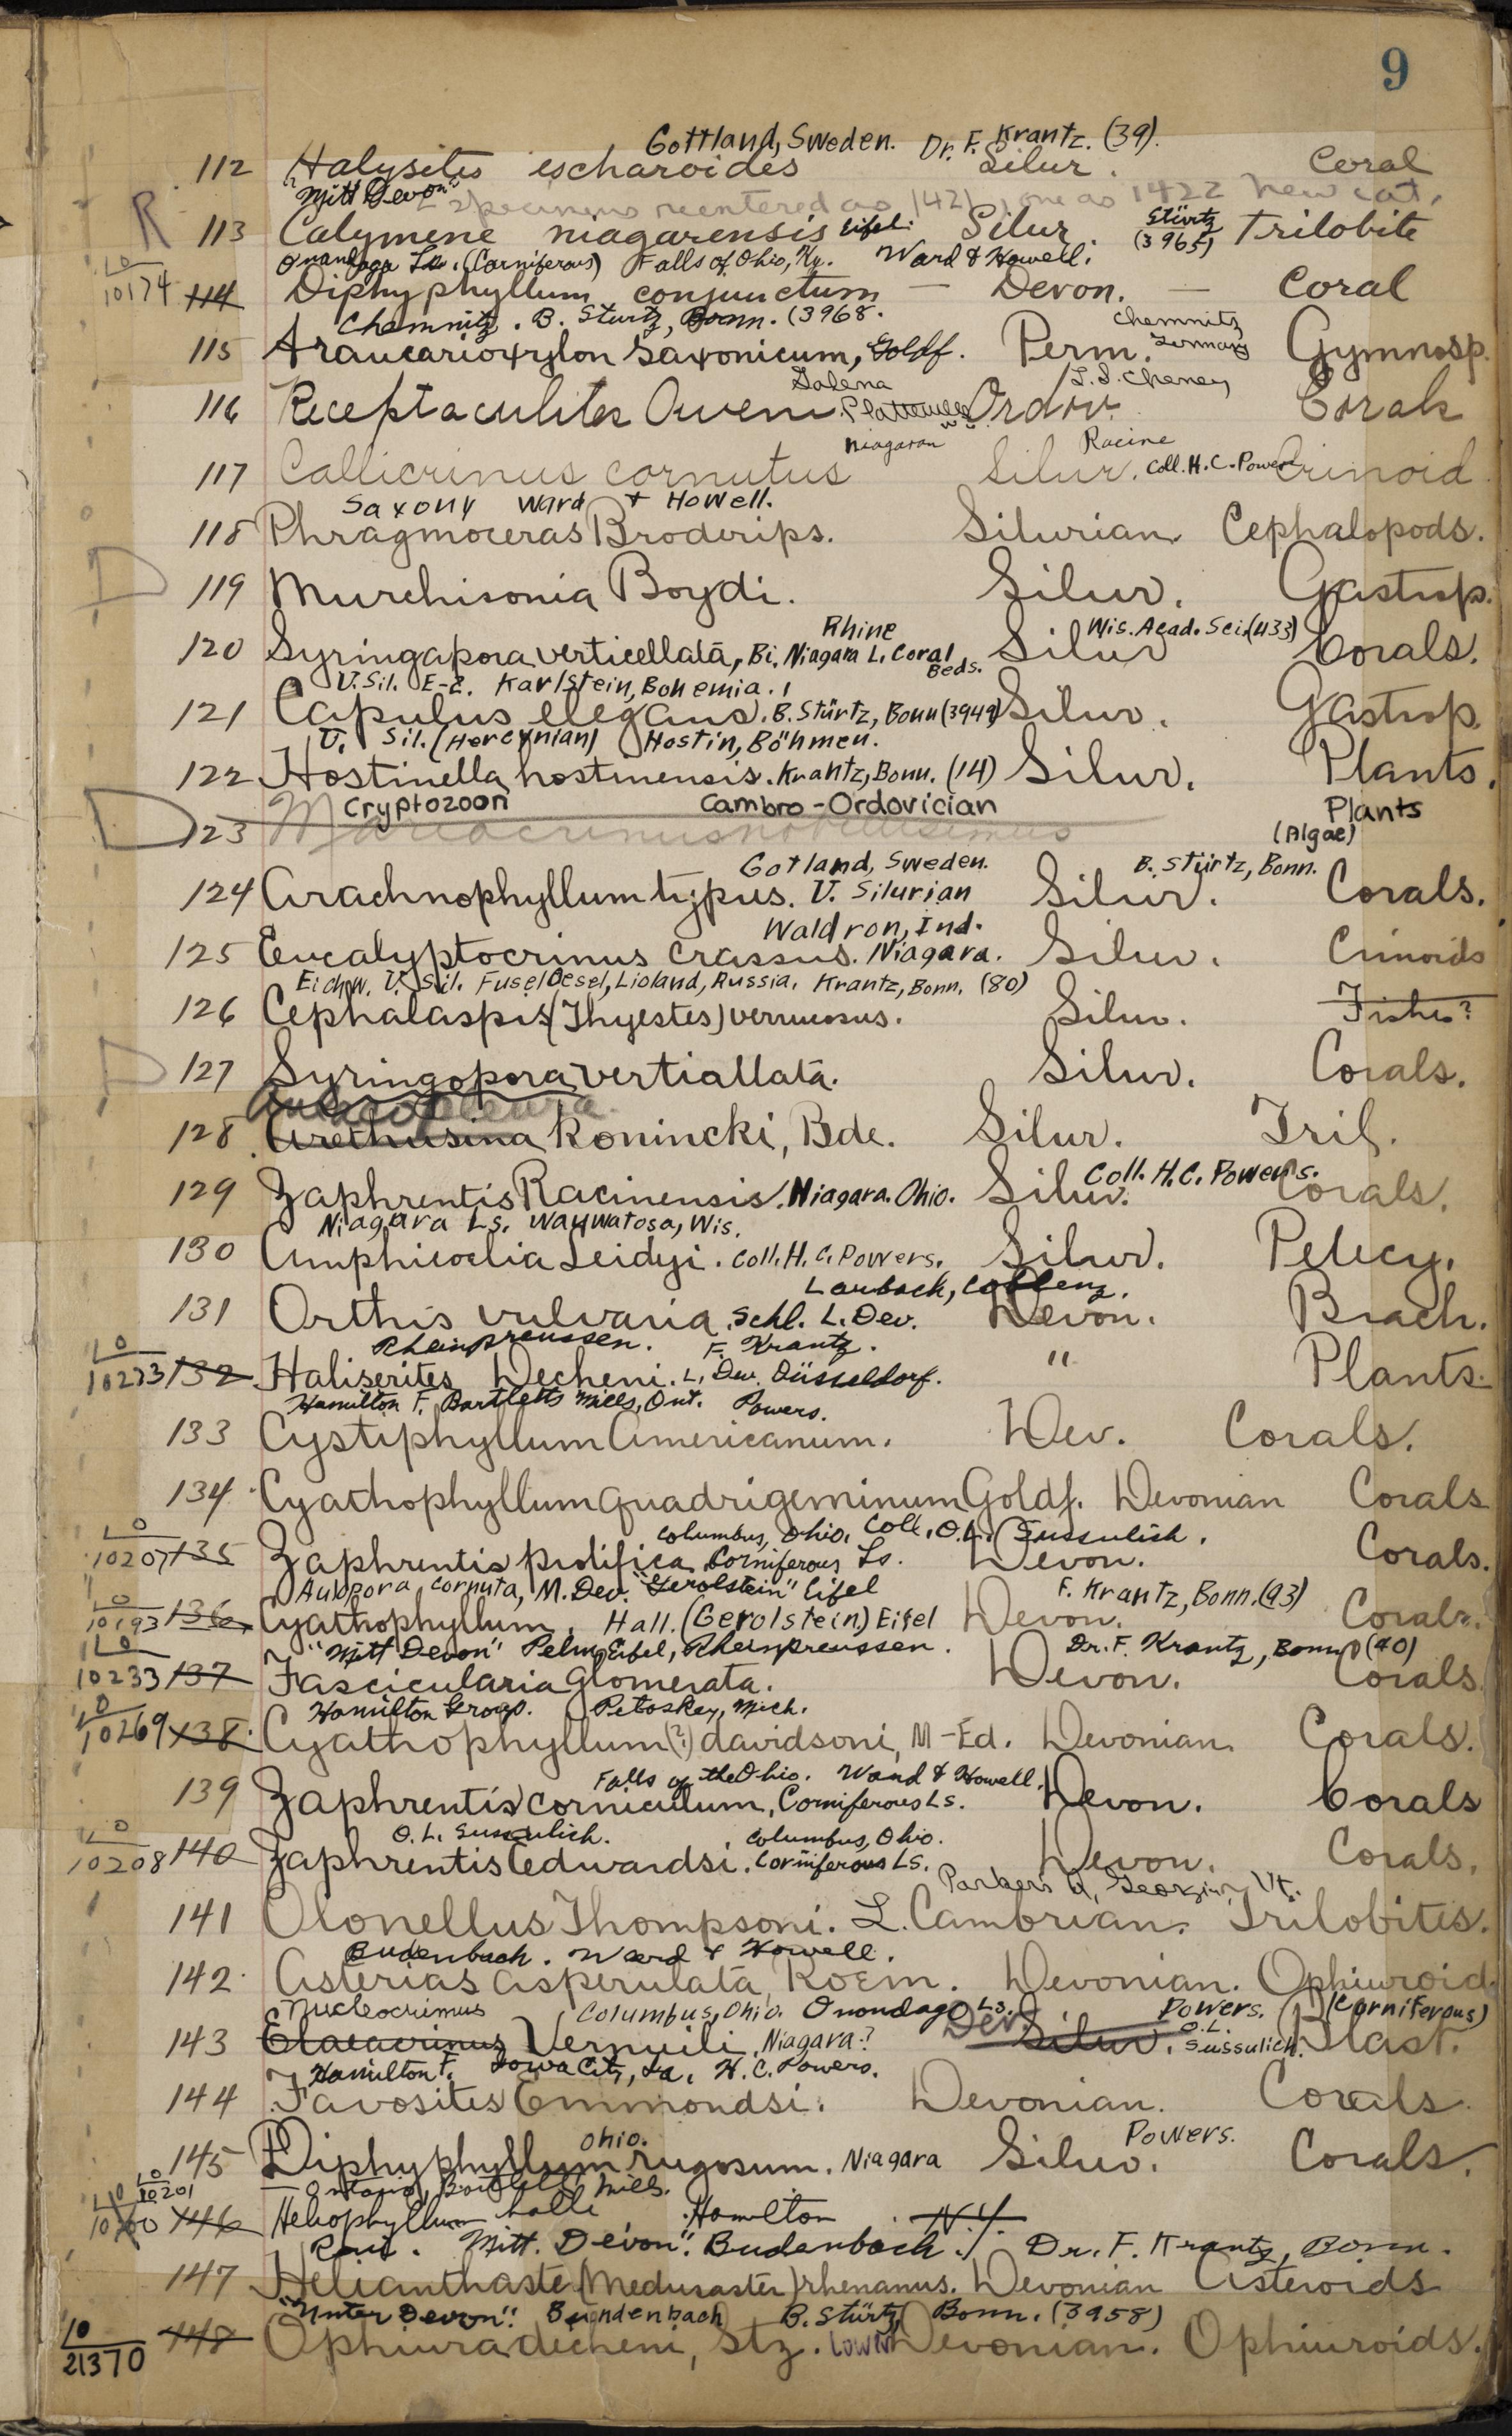 9
Gottland, Sweden. Dr. F. Krantz. (39).
112 Halysites escharoides Silur. Coral
"Mitt Devon" 2 specimens reentered as 1421, one as 1422 new cat.
R 113 Calymene niagarensis Eifel. Silur. Stürtz (3965) Trilobite
Onandaga Ls. (Corniferous) Falls of Ohio, Ky. Ward & Howell.
10/10174 114 Diphyphyllum conjunctum — Devon. — Coral
Chemnitz. B. Sturtz, Bonn. (3968. Chemnitz Germany
115 Araucarioxylon Saxonicum, Goldf. Perm. Gymnosp.
Galena L.S. Cheney
116 Receptaculites Oweni. Platteville Wis. Ordov. Corals
Niagaran Racine
117 Callicrinus cornutus Silur. Coll. H. C. Powers Crinoid
Saxony Ward & Howell.
118 Phragmoceras Broderips. Silurian Cephalopods.
D 119 Murchisonia Boydi. Silur. Gastrop.
Rhine Wis. Acad. Sci. (433)
120 Syringapora verticellata, Bi. Niagara L. Coral Beds. Silur Corals.
U. Sil. E-2. Karlstein, Bohemia.
121 Capulus elegans. B. Stürtz, Bonn (3949) Silur. Gastrop.
U. Sil. (Hercynian) Hostin, Böhmen.
122 Hostinella hostinensis. Krantz, Bonn. (14) Silur. Plants.
Cryptozoon Cambro-Ordovician Plants
D 123 Mariacrinus nobilissimus (Algae)
Gotland, Sweden. B. Stürtz, Bonn.
124 Arachnophyllum typus. U. Silurian Silur. Corals.
Waldron, Ind.
125 Eucalyptocrinus crassus. Niagara. Silur. Crinoids
Eichw. U. Sil. Fusel Oesel, Lioland, Russia. Krantz, Bonn. (80)
126 Cephalaspis (Thyestes) verrucosus. Silur. Fishes?
D 127 Syringopora vertiallata. Silur. Corals.
Aulacopleura
128 Arethusina Konincki, Bde. Silur. Tril.
129 Zaphrentis Racinensis. Niagara. Ohio. Silur. Coll. H. C. Powers. Corals.
Niagara Ls. Wauwatosa, Wis.
130 Amphicoelia Leidyi. Coll. H. C. Powers. Silur. Pelecy.
Laubach, Coblenz.
131 Orthis vulvaria. Schl. L. Dev. Devon. Brach.
Rheinpreussen. F. Krantz.
10/10273 132 Haliserites Decheni. L. Dev. Düsseldorf. " Plants.
Hamilton F. Bartletts Mills, Ont. Powers.
133 Cystiphyllum Americanum. Dev. Corals.
134 Cyathophyllum quadrigeminum Goldf. Devonian Corals
Columbus, Ohio. Coll. O. L. Sussulich.
10/10207 135 Zaphrentis prolifica Corniferous Ls. Devon. Corals.
Aulopora cornuta, M. Dev. "Gerolstein" Eifel F. Krantz, Bonn. (93)
10/10193 136 Cyathophyllum. Hall. (Gerolstein) Eifel Devon. Corals.
"Mitt Devon" Pelm, Eifel, Rheinpreussen. Dr. F. Krantz, Bonn (40)
10/10233 137 Fascicularia Glomerata. Devon. Corals.
Hamilton Group. Petoskey, Mich.
10/10269 138 Cyathophyllum (?) davidsoni, M-Ed. Devonian Corals.
Falls of the Ohio. Ward & Howell.
139 Zaphrentis corniculum, Corniferous Ls. Devon. Corals
O. L. Sussulich. Columbus, Ohio.
10/10208 140 Zaphrentis Edwardsi. Corniferous LS. Devon. Corals.
Parkers Q, Georgia, Vt.
141 Olonellus Thompsoni. L. Cambrian. Trilobites.
Budenbach. Ward & Howell.
142 Asterias asperulata, Roem. Devonian. Ophiuroid.
Nucleocrinus Columbus, Ohio. Onondaga Ls. Powers. (Corniferous)
143 Elaeacrinus Vernuili. Niagara? Dev Silur. O. L. Sussulich. Blast.
Hamilton F. Iowa City, Ia. H. C. Powers.
144 Favosites Emmondsi. Devonian. Corals.
Ohio. Powers.
145 Diphyphyllum rugosum. Niagara Silur. Corals.
10/10201 Ontario, Bartlett Mills.
10/10200 146 Heliophyllum halli. Hamilton N.Y.
Mitt. Devon". Budenbach. Dr. F. Krantz, Bonn.
147 Helianthaste (Medusaster) rhenanus. Devonian Asteroids
"Unter Devon". Bundenbach B. Stürtz Bonn. (3958)
10/21370 148 Ophiura decheni, Stz. Lower Devonian. Ophiuroids.